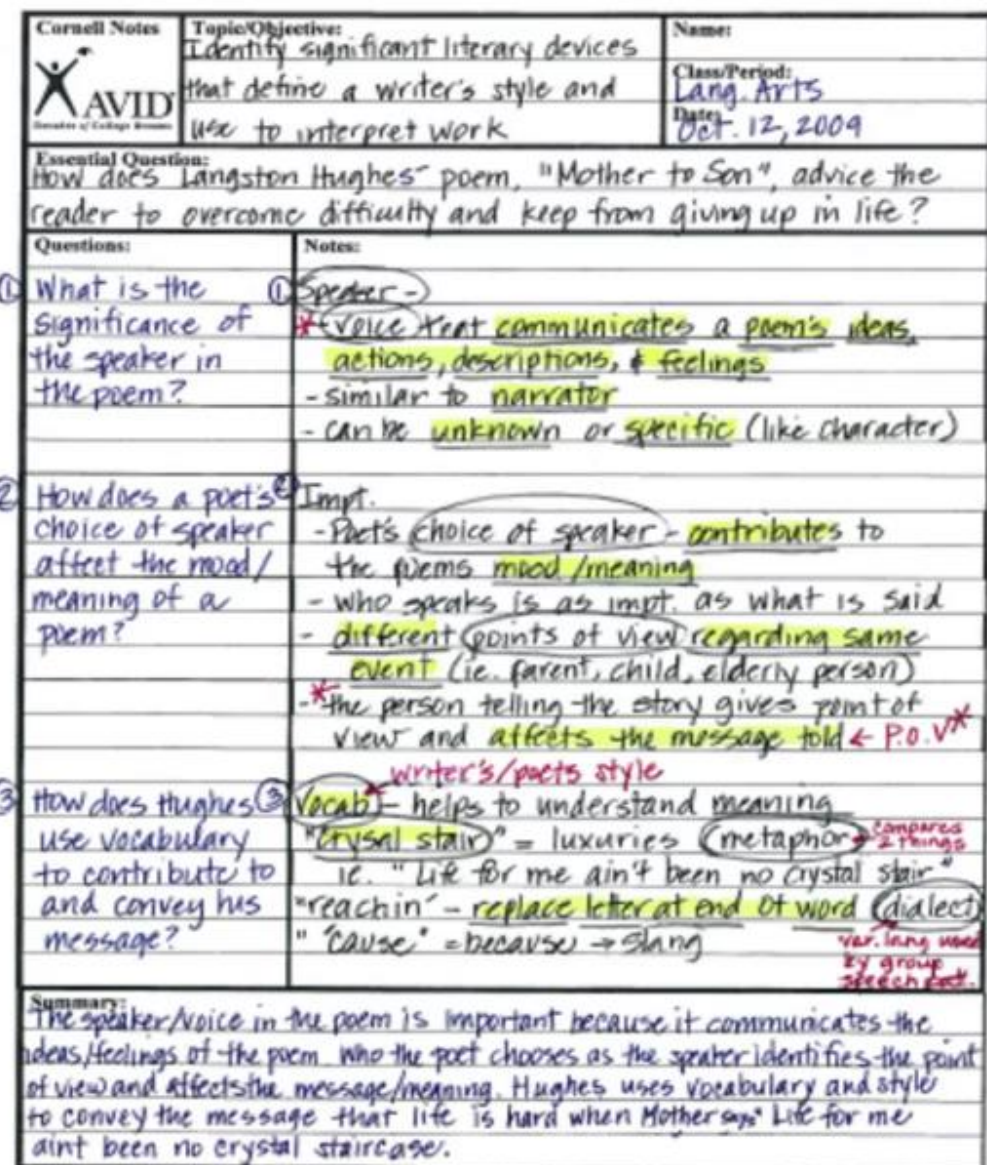 Cornell Notes
AVID
Decades of College Dreams
Topic/Objective:
Identify significant literary devices
that define a writer's style and
use to interpret work
Name:
Class/Period:
Lang. Arts
Date:
Oct. 12, 2009
Essential Question:
How does Langston Hughes' poem, "Mother to Son", advice the
reader to overcome difficulty and keep from giving up in life?
Questions:
① What is the
significance of
the speaker in
the poem?
② How does a poet's
choice of speaker
affect the mood/
meaning of a
poem?
③ How does Hughes
use vocabulary
to contribute to
and convey his
message?
Notes:
① Speaker -
* - voice that communicates a poem's ideas,
actions, descriptions, & feelings
- similar to narrator
- can be unknown or specific (like character)
② Impt.
- Poet's choice of speaker - contributes to
the poems mood/meaning
- who speaks is as impt. as what is said
- different points of view regarding same
event (ie. parent, child, elderly person)
- * the person telling the story gives point of
view and affects the message told ← P.O.V *
writer's/poets style
③ Vocab - helps to understand meaning
"crysal stair" = luxuries (metaphor → compares
2 things
ie. "Life for me ain't been no crystal stair"
"reachin" - replace letter at end of word (dialect)
" 'cause" = because → slang
var. lang used
by group
speech pat.
Summary:
The speaker/voice in the poem is important because it communicates the
ideas/feelings of the poem. Who the poet chooses as the speaker identifies the point
of view and affects the message/meaning. Hughes uses vocabulary and style
to convey the message that life is hard when Mother says" Life for me
aint been no crystal staircase.